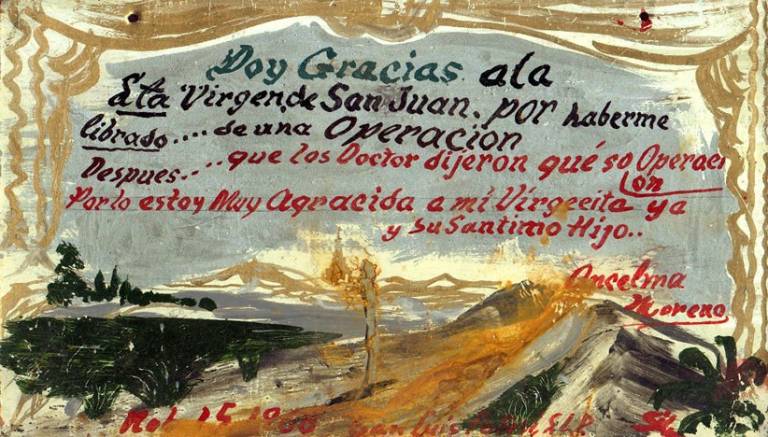 Doy Gracias ala
Sta Virgen,de San Juan. por haberme
librado.... de una Operacion
Despues.. ..que los Doctor dijeron qué so Operac
ion
Porlo estoy Muy Agracida a mi Virgecita ya
y su Santimo Hijo..
Ancelma
Moreno
15 San Luis